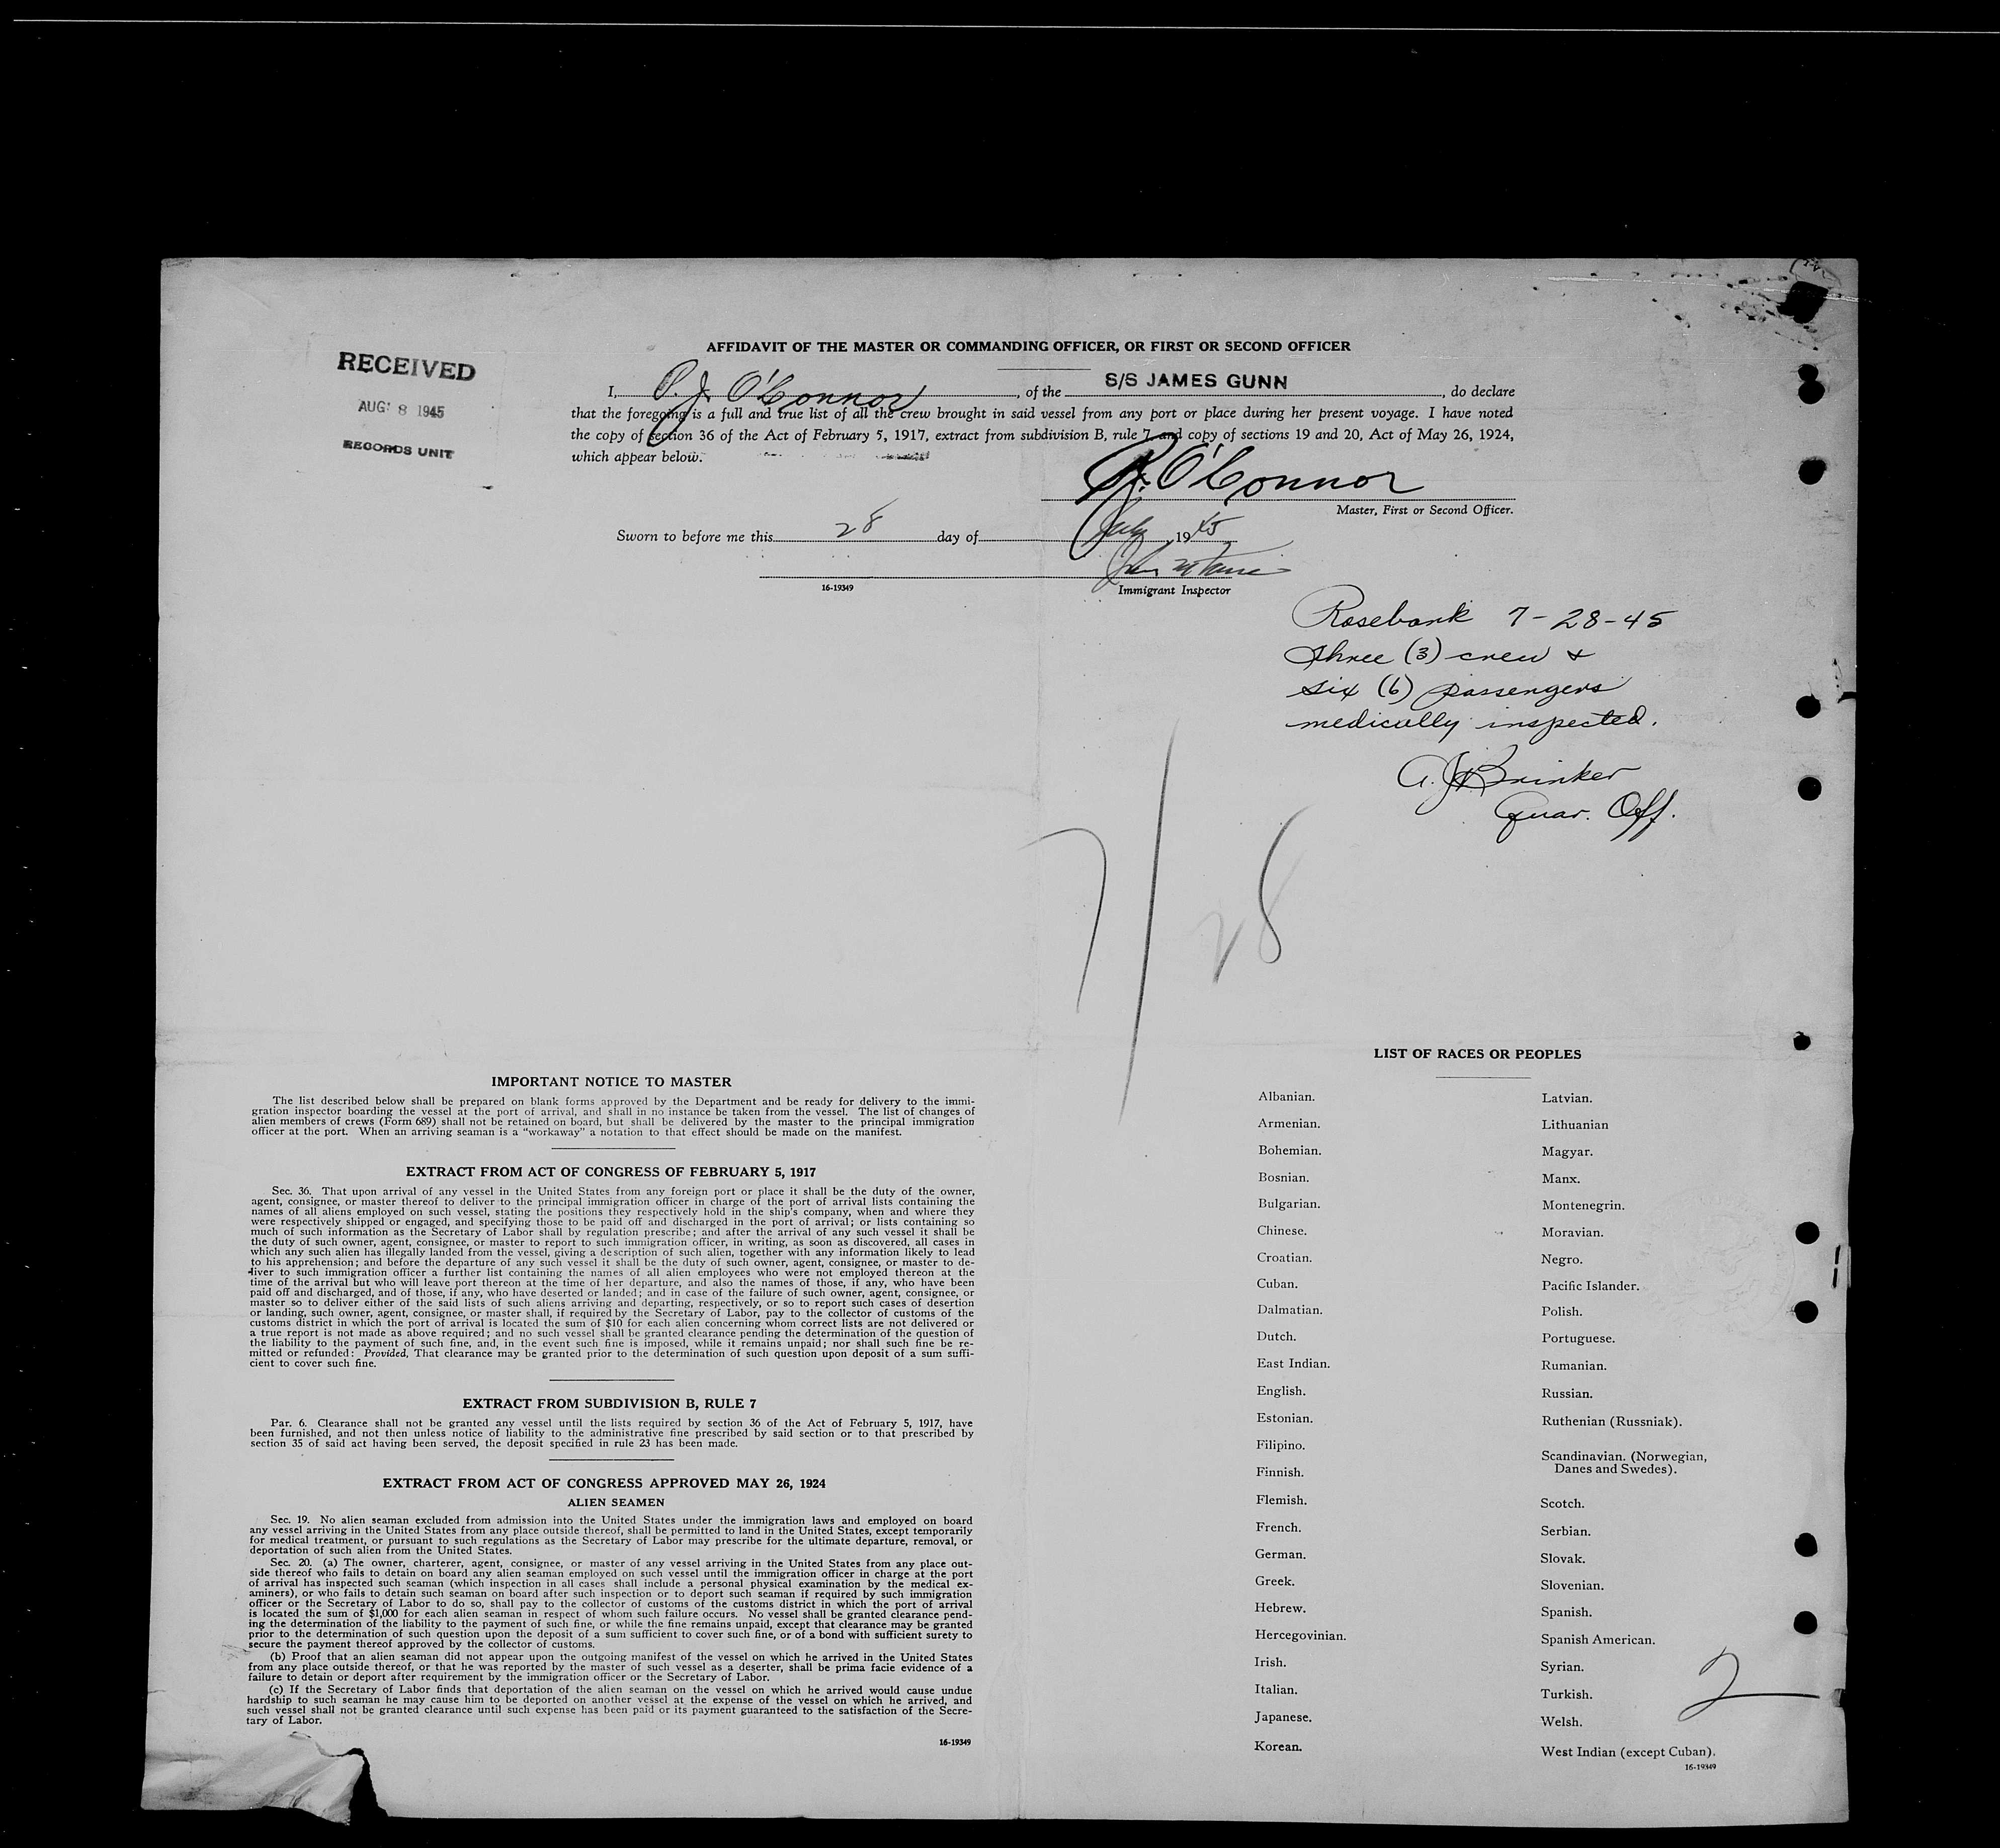 RECEIVED
AUG 8 1945
RECORDS UNIT
AFFIDAVIT OF THE MASTER OR COMMANDING OFFICER, OR FIRST OR SECOND OFFICER
I, P. J. O'Connor, of the S/S JAMES GUNN, do declare
that the foregoing is a full and true list of all the crew brought in said vessel from any port or place during her present voyage. I have noted
the copy of section 36 of the Act of February 5, 1917, extract from subdivision B, rule 7, and copy of sections 19 and 20, Act of May 26, 1924,
which appear below.
P. J. O'Connor
Master, First or Second Officer.
Sworn to before me this 28 day of July, 1945
16-19349
Immigrant Inspector
Rosebank 7-28-45
Three (3) crew &
six (6) passengers
medically inspected.
A. J. Brinker
Quar. Off.
7/28
IMPORTANT NOTICE TO MASTER
The list described below shall be prepared on blank forms approved by the Department and be ready for delivery to the immi-
gration inspector boarding the vessel at the port of arrival, and shall in no instance be taken from the vessel. The list of changes of
alien members of crews (Form 689) shall not be retained on board, but shall be delivered by the master to the principal immigration
officer at the port. When an arriving seaman is a "workaway" a notation to that effect should be made on the manifest.
EXTRACT FROM ACT OF CONGRESS OF FEBRUARY 5, 1917
Sec. 36. That upon arrival of any vessel in the United States from any foreign port or place it shall be the duty of the owner,
agent, consignee, or master thereof to deliver to the principal immigration officer in charge of the port of arrival lists containing the
names of all aliens employed on such vessel, stating the positions they respectively hold in the ship's company, when and where they
were respectively shipped or engaged, and specifying those to be paid off and discharged in the port of arrival; or lists containing so
much of such information as the Secretary of Labor shall by regulation prescribe; and after the arrival of any such vessel it shall be
the duty of such owner, agent, consignee, or master to report to such immigration officer, in writing, as soon as discovered, all cases in
which any such alien has illegally landed from the vessel, giving a description of such alien, together with any information likely to lead
to his apprehension; and before the departure of any such vessel it shall be the duty of such owner, agent, consignee, or master to de-
liver to such immigration officer a further list containing the names of all alien employees who were not employed thereon at the
time of the arrival but who will leave port thereon at the time of her departure, and also the names of those, if any, who have been
paid off and discharged, and of those, if any, who have deserted or landed; and in case of the failure of such owner, agent, consignee, or
master so to deliver either of the said lists of such aliens arriving and departing, respectively, or so to report such cases of desertion
or landing, such owner, agent, consignee, or master shall, if required by the Secretary of Labor, pay to the collector of customs of the
customs district in which the port of arrival is located the sum of $10 for each alien concerning whom correct lists are not delivered or
a true report is not made as above required; and no such vessel shall be granted clearance pending the determination of the question of
the liability to the payment of such fine, and, in the event such fine is imposed, while it remains unpaid; nor shall such fine be re-
mitted or refunded: Provided, That clearance may be granted prior to the determination of such question upon deposit of a sum suffi-
cient to cover such fine.
EXTRACT FROM SUBDIVISION B, RULE 7
Par. 6. Clearance shall not be granted any vessel until the lists required by section 36 of the Act of February 5, 1917, have
been furnished, and not then unless notice of liability to the administrative fine prescribed by said section or to that prescribed by
section 35 of said act having been served, the deposit specified in rule 23 has been made.
EXTRACT FROM ACT OF CONGRESS APPROVED MAY 26, 1924
ALIEN SEAMEN
Sec. 19. No alien seaman excluded from admission into the United States under the immigration laws and employed on board
any vessel arriving in the United States from any place outside thereof, shall be permitted to land in the United States, except temporarily
for medical treatment, or pursuant to such regulations as the Secretary of Labor may prescribe for the ultimate departure, removal, or
deportation of such alien from the United States.
Sec. 20. (a) The owner, charterer, agent, consignee, or master of any vessel arriving in the United States from any place out-
side thereof who fails to detain on board any alien seaman employed on such vessel until the immigration officer in charge at the port
of arrival has inspected such seaman (which inspection in all cases shall include a personal physical examination by the medical ex-
aminers), or who fails to detain such seaman on board after such inspection or to deport such seaman if required by such immigration
officer or the Secretary of Labor to do so, shall pay to the collector of customs of the customs district in which the port of arrival
is located the sum of $1,000 for each alien seaman in respect of whom such failure occurs. No vessel shall be granted clearance pend-
ing the determination of the liability to the payment of such fine, or while the fine remains unpaid, except that clearance may be granted
prior to the determination of such question upon the deposit of a sum sufficient to cover such fine, or of a bond with sufficient surety to
secure the payment thereof approved by the collector of customs.
(b) Proof that an alien seaman did not appear upon the outgoing manifest of the vessel on which he arrived in the United States
from any place outside thereof, or that he was reported by the master of such vessel as a deserter, shall be prima facie evidence of a
failure to detain or deport after requirement by the immigration officer or the Secretary of Labor.
(c) If the Secretary of Labor finds that deportation of the alien seaman on the vessel on which he arrived would cause undue
hardship to such seaman he may cause him to be deported on another vessel at the expense of the vessel on which he arrived, and
such vessel shall not be granted clearance until such expense has been paid or its payment guaranteed to the satisfaction of the Secre-
tary of Labor.
16-19349
LIST OF RACES OR PEOPLES
Albanian.
Armenian.
Bohemian.
Bosnian.
Bulgarian.
Chinese.
Croatian.
Cuban.
Dalmatian.
Dutch.
East Indian.
English.
Estonian.
Filipino.
Finnish.
Flemish.
French.
German.
Greek.
Hebrew.
Hercegovinian.
Irish.
Italian.
Japanese.
Korean.
Latvian.
Lithuanian
Magyar.
Manx.
Montenegrin.
Moravian.
Negro.
Pacific Islander.
Polish.
Portuguese.
Rumanian.
Russian.
Ruthenian (Russniak).
Scandinavian. (Norwegian,
Danes and Swedes).
Scotch.
Serbian.
Slovak.
Slovenian.
Spanish.
Spanish American.
Syrian.
Turkish.
Welsh.
West Indian (except Cuban).
16-19349
2